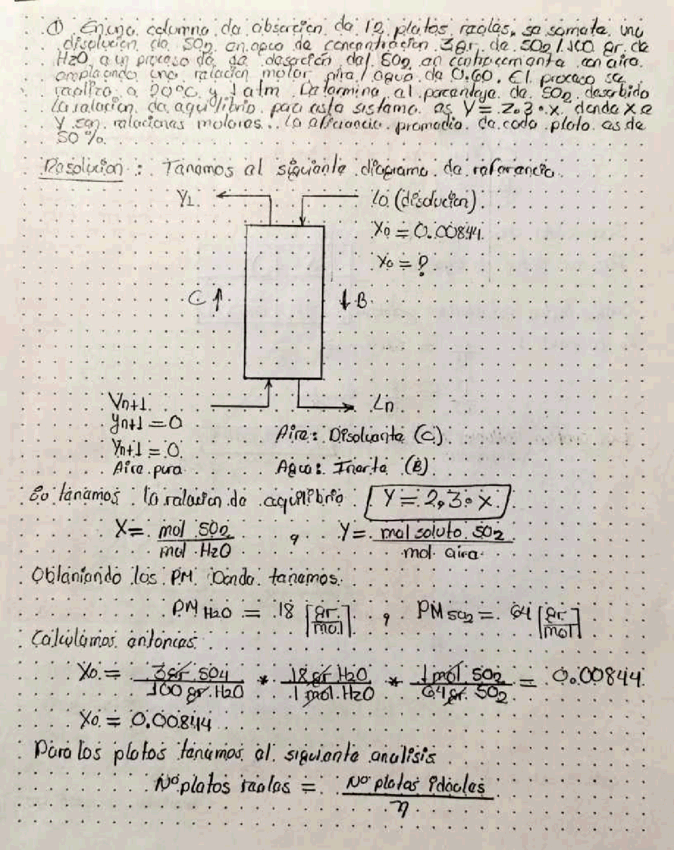 ① En una columna de absorcion de 12 platos reales, se somete una
disolucion de SO2 en agua de concentracion 3gr. de SO2/100 gr. de
H2O, a un proceso de de desorcion del SO2 en contracorriente con aire.
empleando una relacion molar aire/agua de 0.60. El proceso se
realiza a 20°C y 1 atm. Determina el porcentaje de SO2 desorbido
la relacion de equilibrio para este sistema es Y = 2.3 · x donde X e
Y son relaciones molares. La eficiencia promedio de cada plato es de
50%.
Resolucion : Tenemos el siguiente diagrama de referencia.
Y1
Lo (disolucion).
X0 = 0.00844
x0 = ?
C ↑ ↓ B
Vn+1
yn+1 = 0
Yn+1 = 0
Aire pura
Ln
Aire: Disolvente (C).
Agua: Inerte (B)
So tenemos la relacion de equilibrio Y = 2,3 · x
X = mol SO2 / mol H2O , Y = mol soluto SO2 / mol aire
Obteniendo los PM Donde tenemos.
PM H2O = 18 [gr/mol] , PM SO2 = 64 [gr/mol]
Calculamos entonces
X0 = 3gr SO4 / 100 gr. H2O * 18 gr H2O / 1 mol. H2O * 1 mol SO2 / 64 gr. SO2 = 0.00844
X0 = 0.00844
Para los platos tenemos el siguiente analisis
Nº platos reales = Nº platos ideales / η